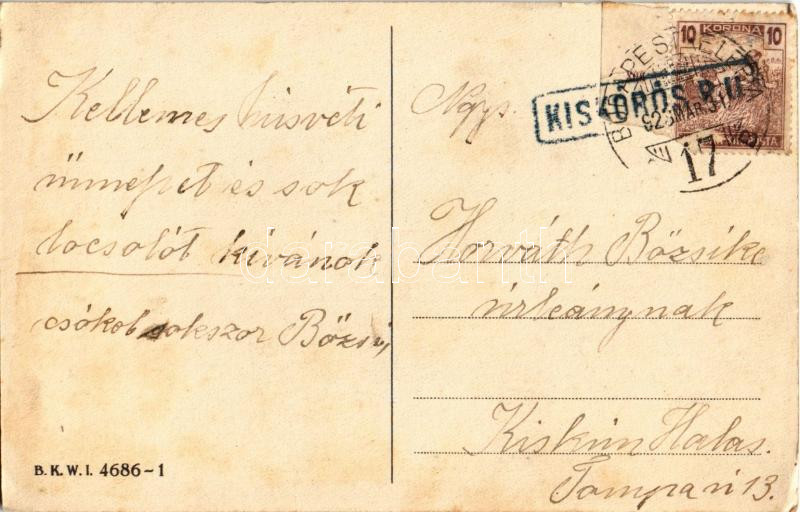 Kellemes húsvéti
ünnepet és sok
locsolót kívánok
csókol sokszor Bözsi
B.K.W.I. 4686-1
10 KORONA 10
KISKŐRÖS P.U.
923 MÁR 31
17
Nagys.
Horváth Bözsike
úrleánynak
Kiskun Halas.
Tompa u 13.
darabanth